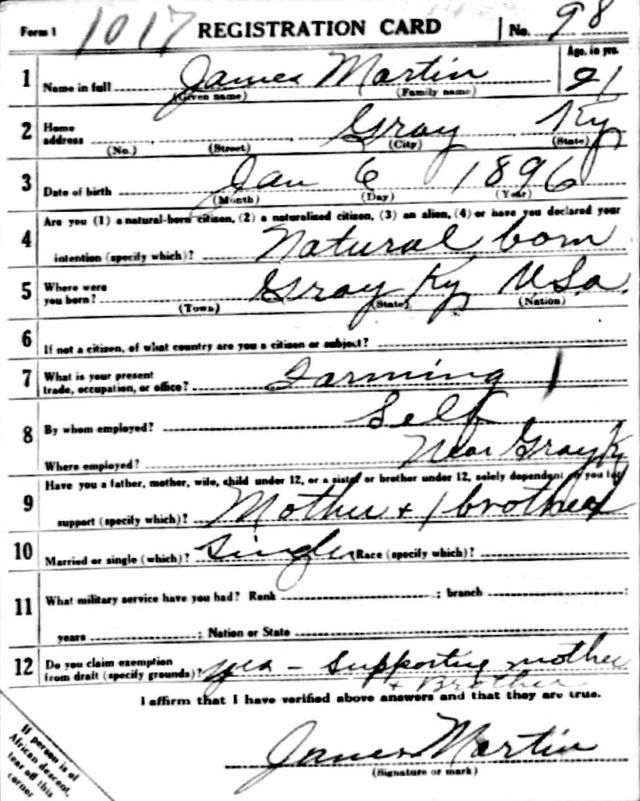 Form 1 1017 REGISTRATION CARD No. 98
1 Name in full James Martin Age, in yrs. 21
(Given name) (Family name)
2 Home address Gray Ky
(No.) (Street) (City) (State)
3 Date of birth Jan 6 1896
(Month) (Day) (Year)
4 Are you (1) a natural-born citizen, (2) a naturalized citizen, (3) an alien, (4) or have you declared your
intention (specify which)? Natural born
5 Where were you born? Gray Ky USA
(Town) (State) (Nation)
6 If not a citizen, of what country are you a citizen or subject?
7 What is your present trade, occupation, or office? Farming 1
8 By whom employed? Self
Where employed? Near Gray Ky
9 Have you a father, mother, wife, child under 12, or a sister or brother under 12, solely dependent on you for
support (specify which)? Mother + 1 brother
10 Married or single (which)? Single Race (specify which)?
11 What military service have you had? Rank ; branch ;
years ; Nation or State
12 Do you claim exemption from draft (specify grounds)? yea - Supporting mother
+ Brother
I affirm that I have verified above answers and that they are true.
James Martin
(Signature or mark)
If person is of
African descent,
tear off this
corner